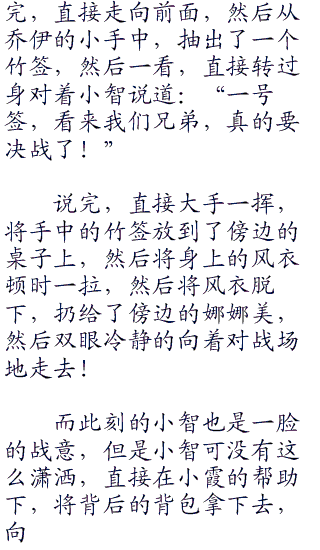 完，直接走向前面，然后从
乔伊的小手中，抽出了一个
竹签，然后一看，直接转过
身对着小智说道：“一号
签，看来我们兄弟，真的要
决战了！”
说完，直接大手一挥，
将手中的竹签放到了傍边的
桌子上，然后将身上的风衣
顿时一拉，然后将风衣脱
下，扔给了傍边的娜娜美，
然后双眼冷静的向着对战场
地走去！
而此刻的小智也是一脸
的战意，但是小智可没有这
么潇洒，直接在小霞的帮助
下，将背后的背包拿下去，
向